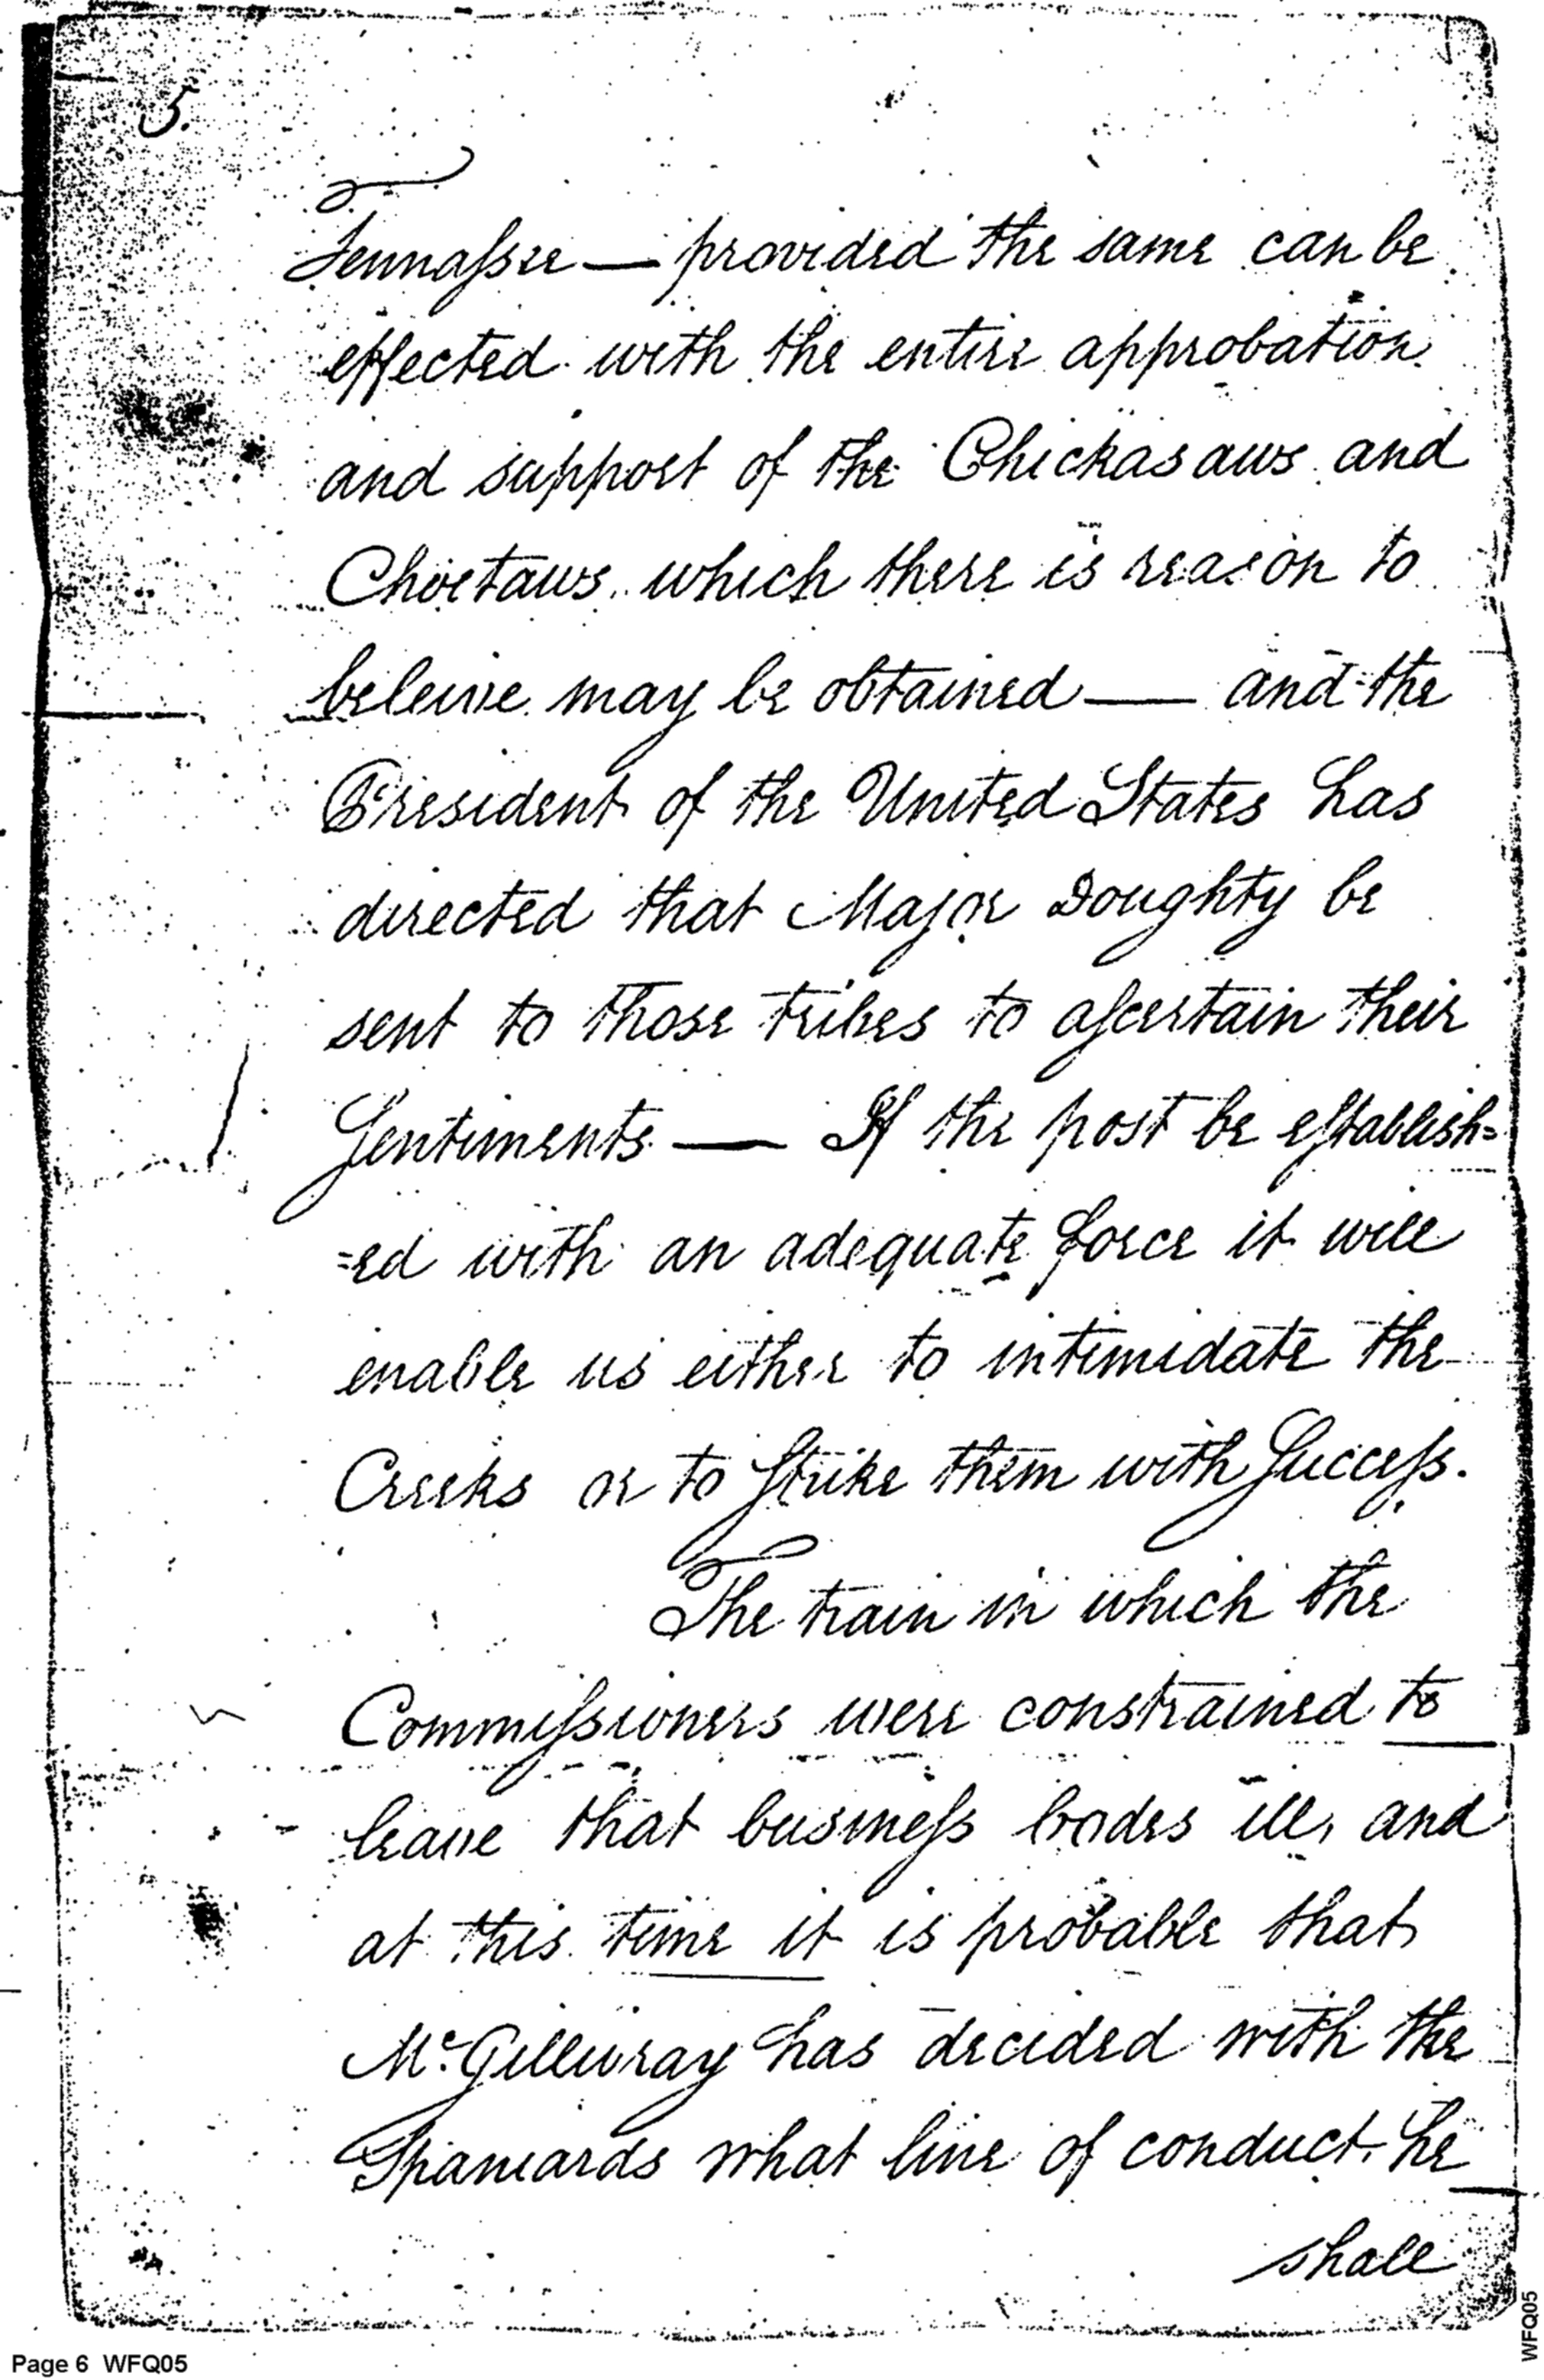 5.
Tennassee — provided the same can be
effected with the entire approbation
and support of the Chickasaws and
Choctaws which there is reason to
beleive may be obtained — and the
President of the United States has
directed that Major Doughty be
sent to those tribes to ascertain their
Sentiments — If the post be establish=
=ed with an adequate force it will
enable us either to intimidate the
Creeks or to strike them with Success.
The train in which the
Commissioners were constrained to
leave that business bodes ill, and
at this time it is probable that
McGillivray has decided with the
Spaniards what line of conduct he
shall
Page 6 WFQ05
WFQ05